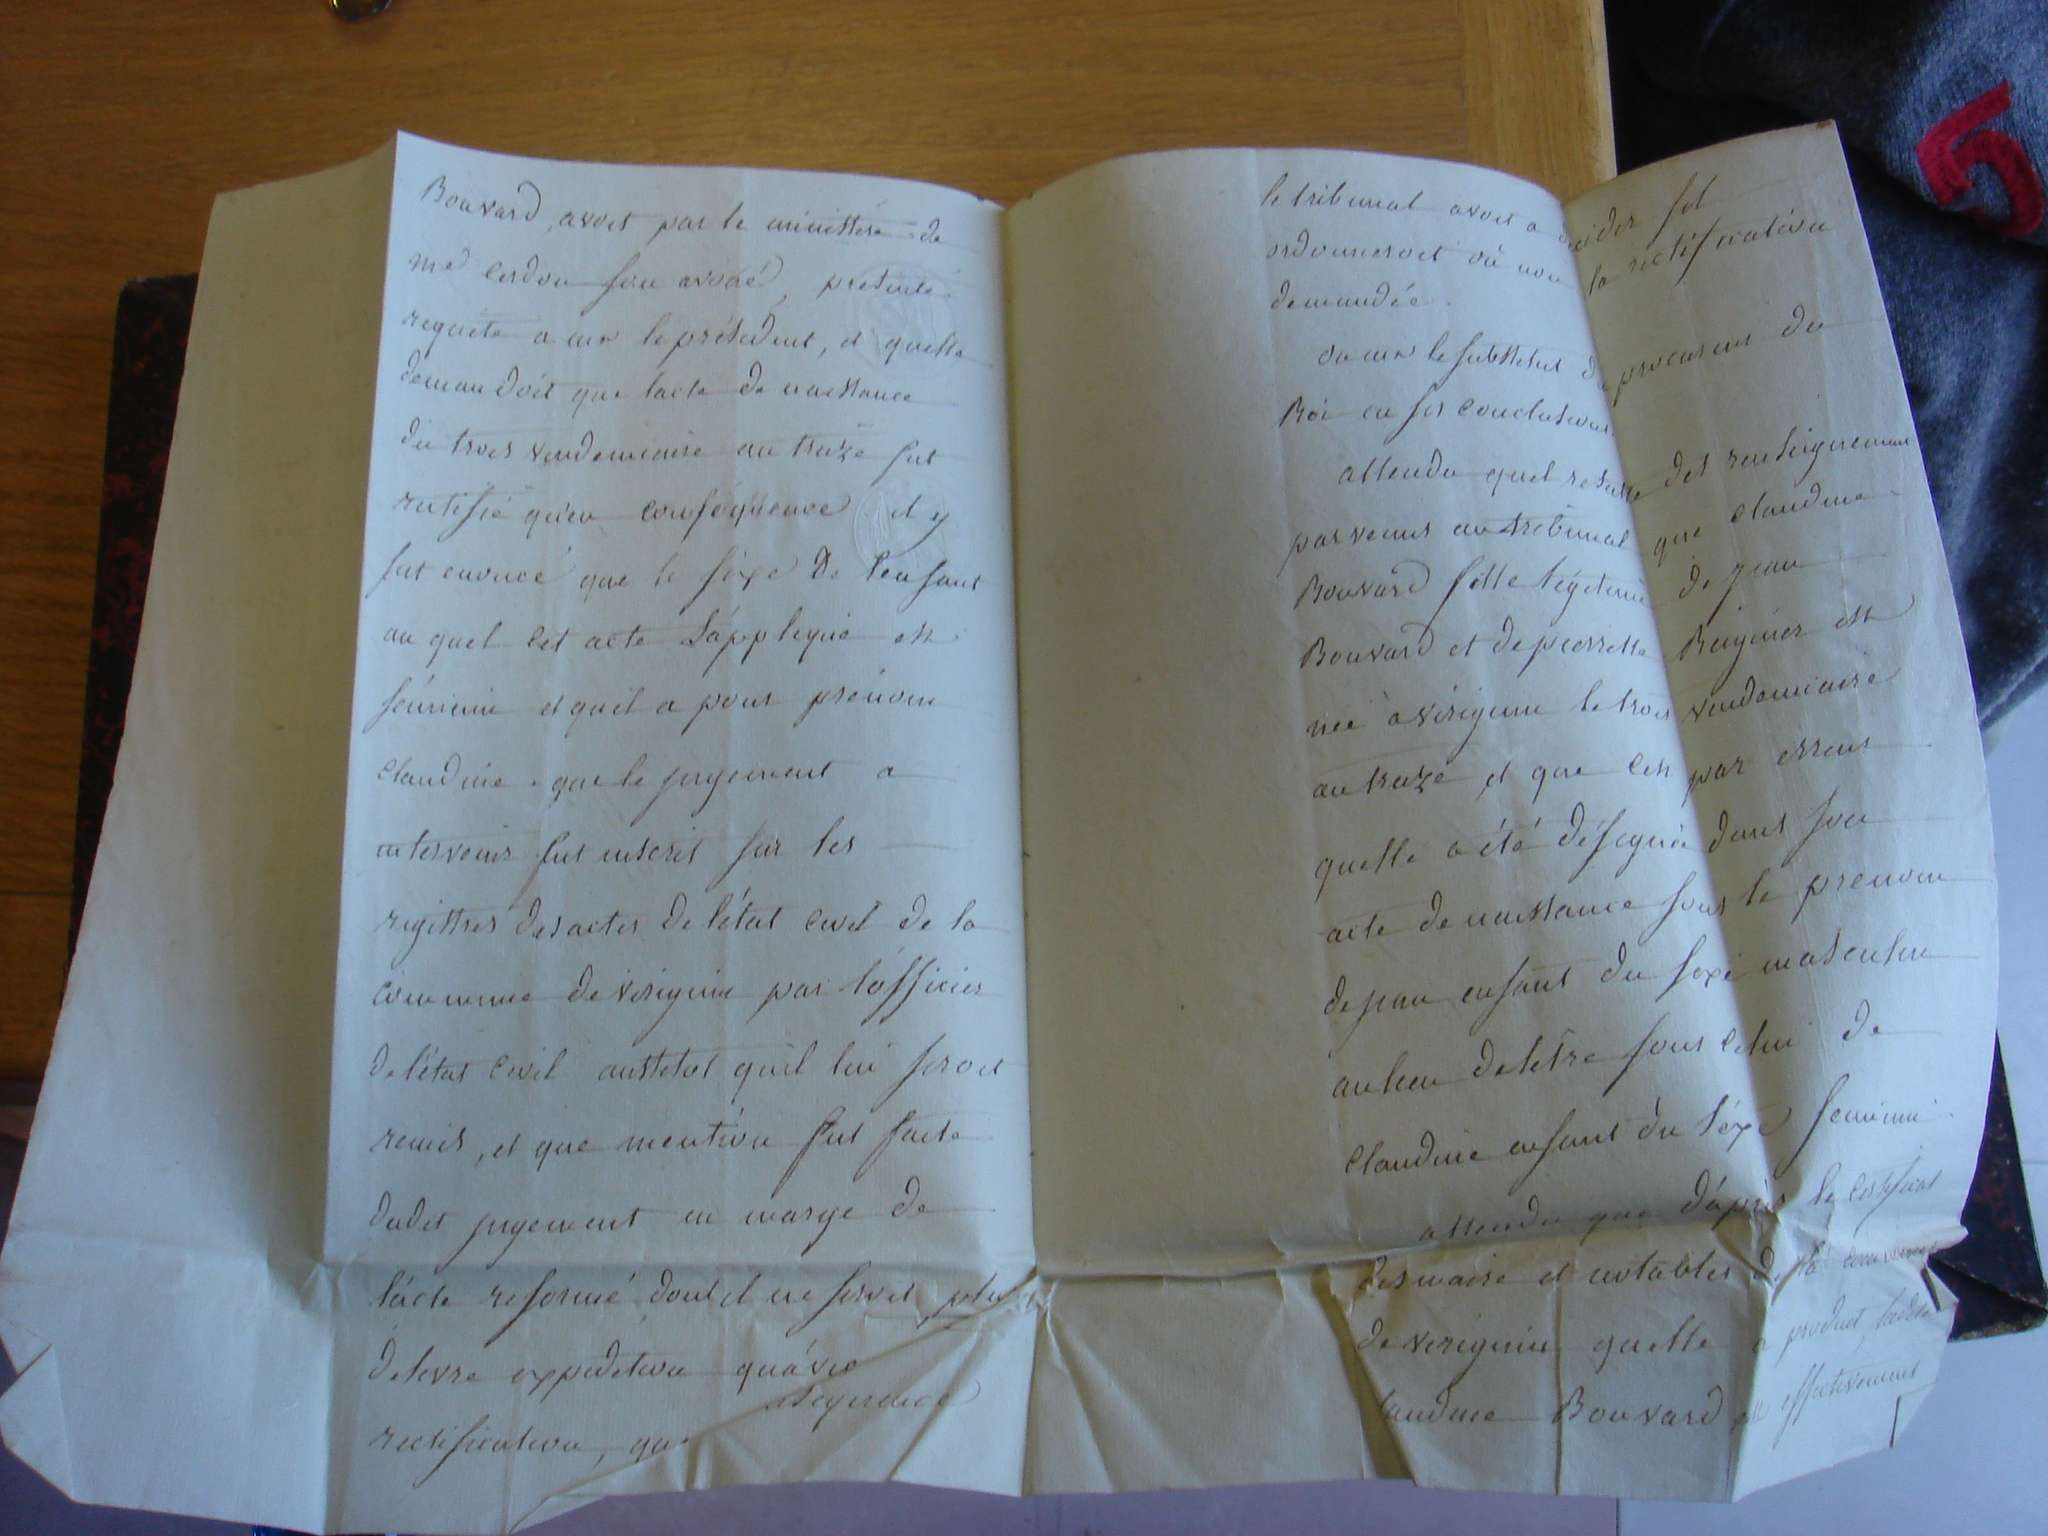 Bouvard, avoit par le ministére de
me Cerdon son avoué, présenté
requête a mr le président, et quelle
demandoit que lacte de naissance
du trois vendemiaire an treize fut
rectifié qu'en conséquence il y
fut enoncé que le sexe de lenfant
au quel cet acte s'applique est
féminin et quil a pour prénom
Claudine. que le jugement a
intervenir fut inscrit sur les
registres des actes de l'état civil de la
commune de virignin par l'officier
de l'état civil aussitot quil lui seroit
remis, et que mention fut faite
dudit jugement en marge de
l'acte reformé dont il ne seroit plus
délivré expédition qu'avec
rectification, que
le tribunal avoit a décider sil
ordonneroit où non la rectification
demandée.
ou mr le substitut du procureur du
Roi en ses conclusions.
attendu quil resulte des renseignemens
parvenus au tribunal que claudine
Bouvard fille légitime de jean
Bouvard et de pierrette Reignier est
née à virignin le trois vendemiaire
an treize et que cest par erreur
quelle a été désignée dans son
acte de naissance sous le prenom
de jean enfant du sexe masculin
au lieu de letre sous celui de
Claudine enfant du séxe feminin.
attendu que d'après le certificat
des maire et notables de la commune
de virignin quelle a produit, ladite
laudine Bouvard est effectivement